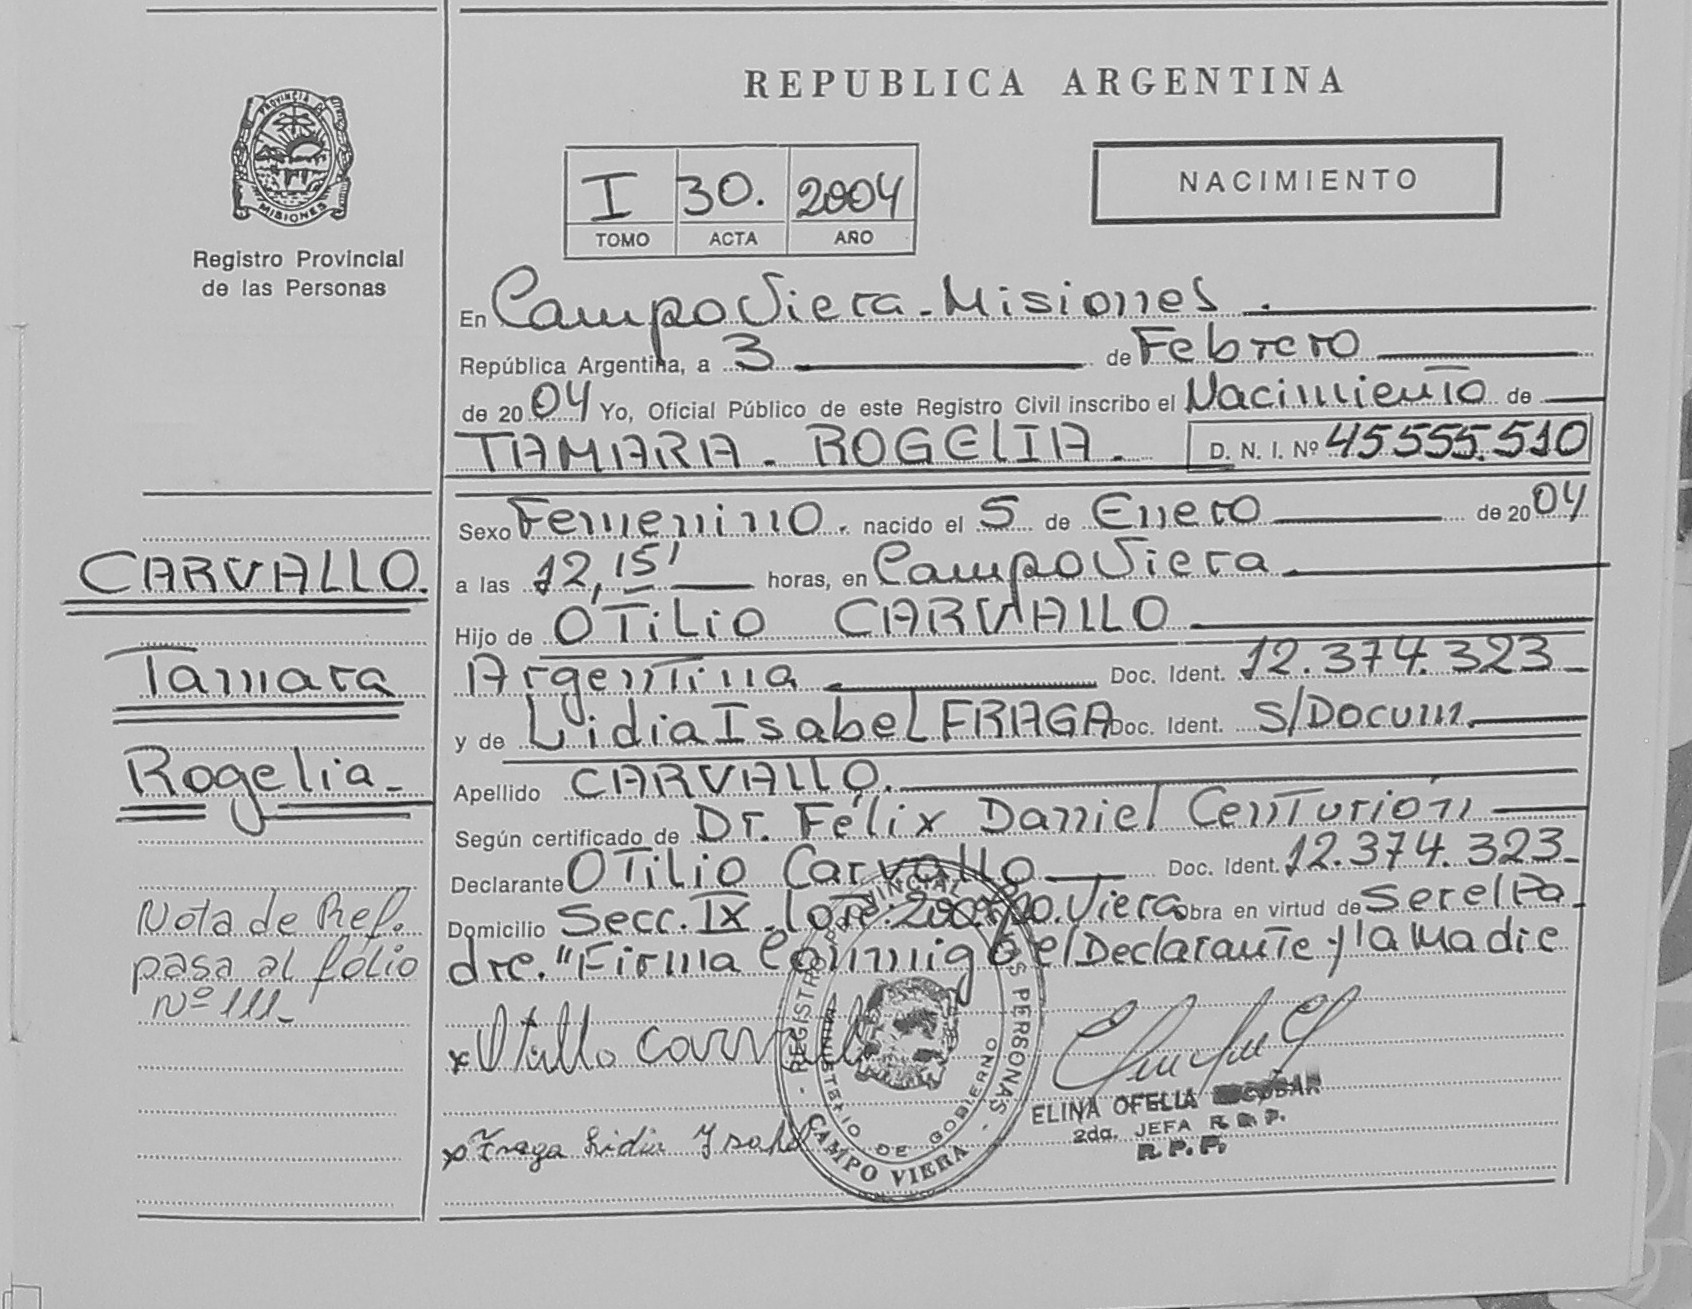 REPUBLICA ARGENTINA
PROVINCIA DE
MISIONES
Registro Provincial
de las Personas
I 30. 2004
TOMO ACTA AÑO
NACIMIENTO
En Campo Viera - Misiones.
República Argentina, a 3 de Febrero
de 2004 Yo, Oficial Público de este Registro Civil inscribo el Nacimiento de
TAMARA - ROGELIA. D. N. I. Nº 45.555.510
Sexo Femenino. nacido el 5 de Enero de 2004
a las 12,15' horas, en Campo Viera.
Hijo de OTiLiO CARVALLO
Argentina Doc. Ident. 12.374.323
y de Lidia Isabel FRAGA Doc. Ident. S/Docum.
Apellido CARVALLO.
Según certificado de Dr. Félix Daniel Centurión
Declarante OTiLiO Carvallo Doc. Ident. 12.374.323
Domicilio Secc. IX Lote: Viera obra en virtud de ser el Pa
dre. "Firma Conmigo el Declarante y la Madre
CARVALLO.
Tamara
Rogelia
Nota de Ref.
pasa al folio
Nº 111
x Otilio Carvallo
x Fraga Lidia Ysabel
REGISTRO PROVINCIAL PERSONAS
MINISTERIO DE GOBIERNO
CAMPO VIERA
ELINA OFELIA ESCOBAR
2da. JEFA
R. P. P.